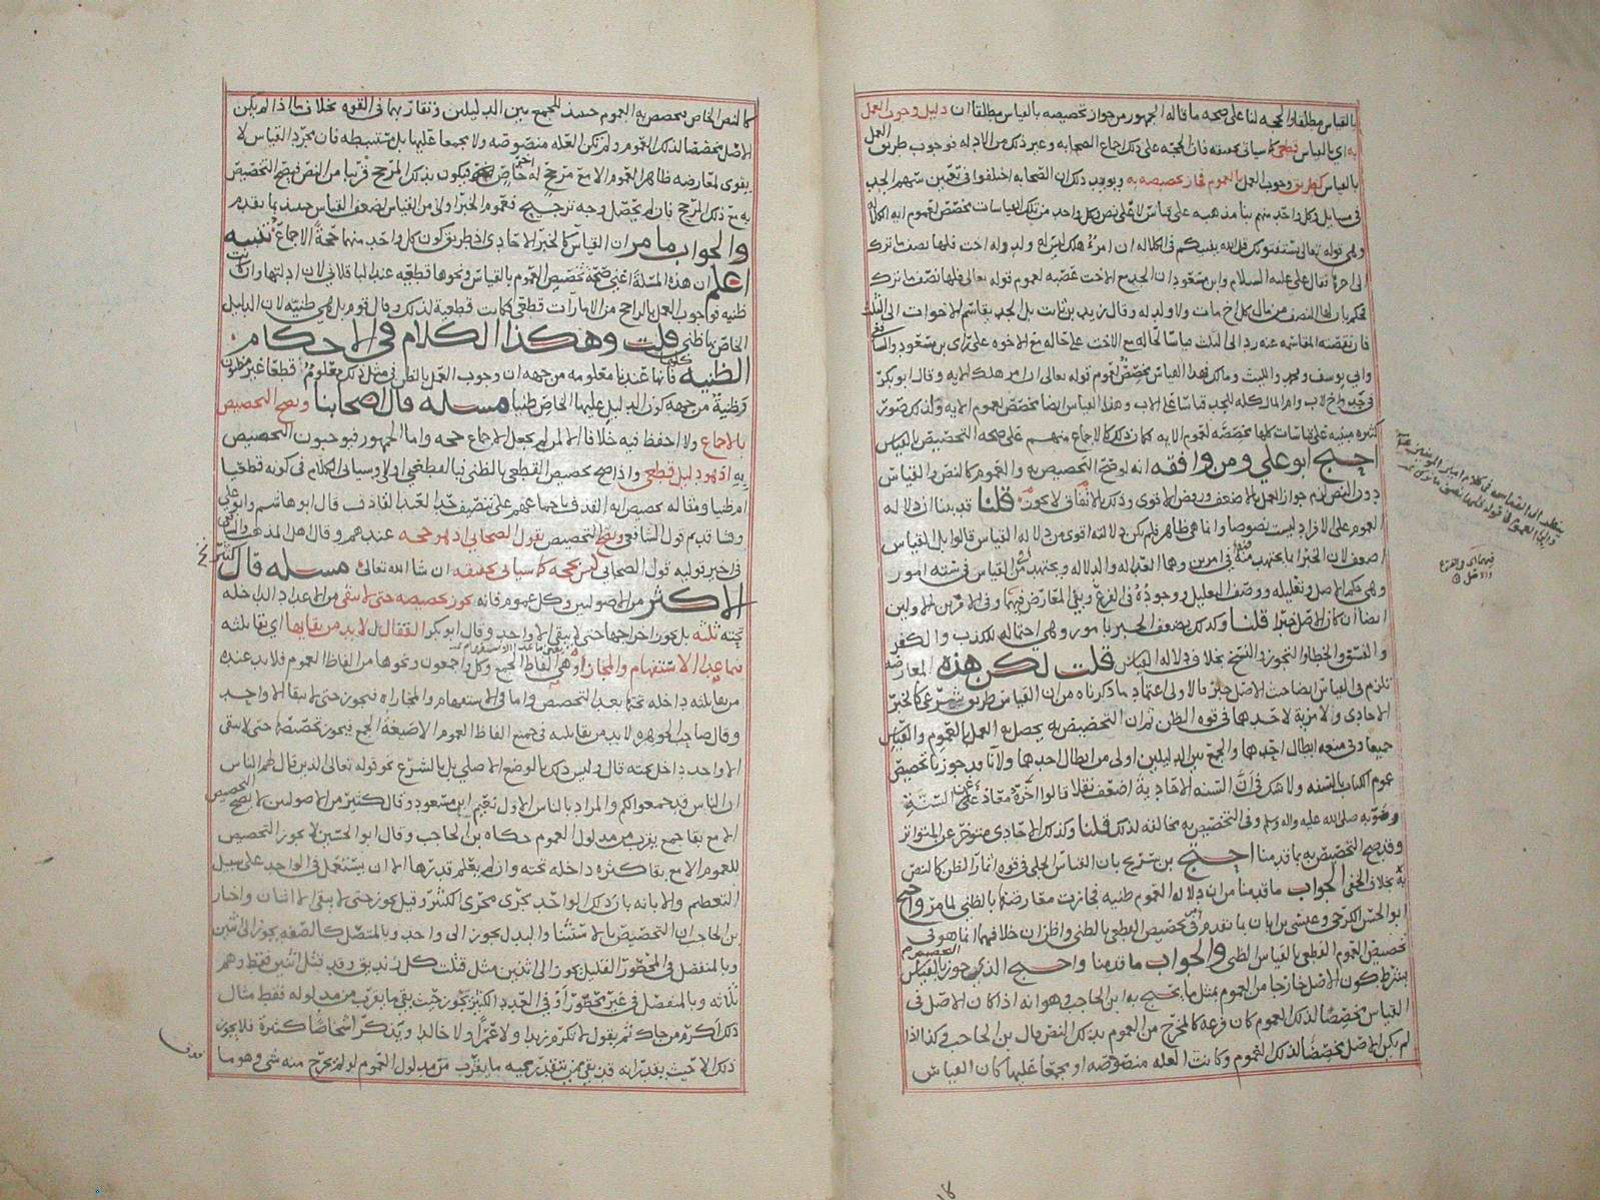 بالقياس مطلقا والحجه لنا على صحه ما قاله الجمهور من جواز تخصيصه بالقياس مطلقا ان دليل وجوب العمل
به اي بالقياس قطعي كما سياتي تحقيقه فان الحجه على ذلك اجماع الصحابه وغير ذلك من الادله فوجوب طريق العمل
بالقياس كطريق وجوب العمل بالعموم فجاز تخصيصه به ويوجب ذلك ان الصحابه اختلفوا في تعيين سهم الجد
في مسايل وكل واحد منهم بنا مذهبه على قياس لا على نص وكل واحد من تلك القياسات تخصص لعموم ايه الكلاله
وهي قوله تعالى يستفتونك قل الله يفتيكم في الكلاله ان امرؤ هلك ليس له ولد وله اخت فلها نصف ما ترك
الى اخره فقال علي عليه السلام وابن مسعود ان الجد مع الاخت عصبه لعموم قوله تعالى فلها نصف ما ترك
فحكم بان لها النصف من مال كل اخ مات ولا ولد له وقال زيد بن ثابت بل الجد يقاسم الاخوات الى الثلث
فان نقصته المقاسمه عنه رد الى الثلث قياسا لحاله مع الاخت على حاله مع الاخوه على راي بن مسعود والشافعي
وابي يوسف ومحمد والليث ومالك فهذا القياس مخصص لعموم قوله تعالى ان امرؤ هلك الايه وقال ابو بكر
في جد واخ لاب وام المال كله للجد قياسا على الاب وهذا القياس ايضا مخصص لعموم الايه ولذلك صور
كثيره مبنيه على قياسات كلها مخصصه لعموم الايه فكان ذلك كالاجماع منهم على صحه التخصيص بالقياس
احتج ابو علي ومن وافقه انه لو صح التخصيص به والعموم كالنص والقياس
دون النص لزم جواز العمل بالاضعف ورفض الاقوى وذلك بالاتفاق لا يجوز قلنا قد بينا ان دلاله
العموم على الافراد ليست نصوصا وانما هي ظاهر فلم يكن دلالته اقوى من دلاله القياس قالوا بل القياس
اضعف لان الخبر انما يجتهد فيه في امرين وهما العداله والدلاله ويجتهد في القياس في سته امور
وهي حكم الاصل وتعليله ووصف التعليل ووجوده في الفرع ونفي المعارض فيهما وفي الامرين الاولين
ايضا ان كان الاصل خبرا قلنا وكذلك يضعف الخبر بامور وهي احتماله للكذب والكفر
والفسق والخطا والتجوز والنسخ بخلاف دلاله القياس قلت لكن هذه المعارضه
تلزم في القياس ايضا حيث الاصل خبر فالاولى اعتماد ما ذكرناه من ان القياس طريق شرعي كالخبر
الاحادي ولا مزية لاحدها في قوه الظن ثم ان التخصيص به يحصل به العمل بالعموم والقياس
جميعا وفي منعه ابطال احدهما والجمع بين الدليلين اولى من ابطال احدهما ولانا قد جوزنا تخصيص
عموم الكتاب بالسنه ولا شك في ان السنه الاحادية اضعف نقلا قالوا اخره معاذ عن السنة
وصوبه صلى الله عليه واله وسلم وفي التخصيص به مخالفه لذلك قلنا وكذلك الاحادي متوخر عن المتواتر
وقد صح التخصيص به بما قدمنا احتج بن سريج بان القياس الجلي في قوه اثمار الظن كالنص
به بخلاف الخفي الجواب ما قدمنا من ان دلاله العموم ظنيه فجازت معارضتها بالظني لما مر واحتج
ابو الحسن الكرخي وعيسى بن ابان بما تقدم في تخصيص القطعي بالظني واظن ان خلافهما انما هو في
تخصيص العموم القطعي بالقياس الظني والجواب ما قدمنا واحتج الذي جوز بالقياس
بشرط كون الاصل خارجا من العموم بمثل ما يحتج به ابن الحاجب وهو انه اذا كان الاصل في
القياس مخصصا لذلك العموم كان فرعه كالمخرج من العموم بذلك النص قال بن الحاجب وكذا اذا
لم يكن الاصل مخصصا لذلك العموم وكانت العله منصوصه او مجمعا عليها كان القياس
فيهما اي في الفرع والاصل
كالنص الخاص تخصص به العموم حينئذ للجمع بين الدليلين وتقاربهما في القوه بخلاف ما اذا لم يكن
الاصل مخصصا لذلك العموم ولم تكن العله منصوصه ولا مجمعا عليها بل مستنبطه فان مجرد القياس لا
يقوى لمعارضه ظاهر العموم الا مع مرجح له خاص فيكون بذلك المرجح قريبا من النص فيصح التخصيص
به مع ذلك المرجح فان لم يحصل وجه ترجيح فعموم الخبر اولى من القياس لضعف القياس حينئذ بما تقدم
والجواب ما مر ان القياس كالخبر الاحادي اذ طريق كون كل واحد منهما حجة الاجماع تنبيه
اعلم ان هذه المسئلة اعني صحة تخصيص العموم بالقياس ونحوها قطعيه عند الباقلاني لان ادلتها وان كانت
ظنيه فوجوب العمل بالراجح من الامارات قطعي فكانت قطعية لذلك وقال قوم بل هي ظنيه لان الدليل
الخاص بها ظني قلت وهكذا الكلام في الاحكام
الظنيه كلها فانها عندنا معلومه من جهه ان وجوب العمل بالظن في مثل ذلك معلوم قطعا غير مظنون
وظنية من جهه كون الدليل عليها الخاص ظنيا مسئله قال اصحابنا ويصح التخصيص
بالاجماع ولا احفظ فيه خلافا الا لمن لم يجعل الاجماع حجه واما الجمهور فيوجبون التخصيص
به اذ هو دليل قطعي واذا صح تخصيص القطعي بالظني فبالقطعي اولى وسياتي الكلام في كونه قطعيا
ام ظنيا ومثاله تخصيص ايه القذف باجماعهم على تنصيف حد العبد القاذف قال ابو هاشم وابو علي
وفي قديم قول الشافعي ويصح التخصيص بقول الصحابي اذ هو حجه عندهم وقال اهل المذهب والشافعي
في اخير قوليه قول الصحابي ليس بحجه كما سياتي تحقيقه ان شا الله تعالى مسئله قال
الاكثر من الاصوليين وكل عموم فانه يجوز تخصيصه حتى لا يبقى من الاعداد الداخله
تحته ثلثه بل يجوز اخراجها حتى لا يبقى الا واحد وقال ابو بكر القفال بل لا بد من بقايها اي بقا ثلثه
فما عدا الاستفهام والمجازاه وهي الفاظ الجمع وكل واجمعون ونحوها من الفاظ العموم فلا بد عنده
من بقا ثلثه داخله تحتها بعد التخصيص واما في الاستفهام والمجازاه فيجوز حتى لا يبقا الا واحد
وقال صاحب الجوهره لا بد من بقا ثلثه في جميع الفاظ العموم الا صيغة الجمع فيجوز تخصيصه حتى لا يبقى
الا واحد داخل تحته قال وليس ذلك بالوضع الاصلي بل بالشرع نحو قوله تعالى الذين قال لهم الناس
ان الناس قد جمعوا لكم والمراد بالناس الاول نعيم ابن مسعود وقال كثير من الاصوليين لا يصح التخصيص
الا مع بقا جمع يقرب من مدلول العموم حكاه بن الحاجب وقال ابو الحسين لا يجوز التخصيص
للعموم الا مع بقا كثره داخله تحته وان لم يعلم قدرها الا ان يستعمل في الواحد على سبيل
التعظيم والابانه بان ذلك الواحد يجري مجرى الكثير وقيل يجوز حتى لا يبقى الا اثنان واختار
بن الحاجب ان التخصيص بالاستثنا والبدل يجوز الى واحد وبالمتصل كالصفه يجوز الى اثنين
وبالمنفصل في المحصور القليل يجوز الى اثنين مثل قتلت كل زنديق وقد قتل اثنين فقط وهم
ثلاثه وبالمنفصل في غير محصور او في العدد الكثير يجوز حيث بقي ما يقرب من مدلوله فقط مثال
ذلك اكرم من جاك ثم يقول لا تكرم زيدا ولا عمرا ولا خالدا ويذكر اشخاصا كثيرة فلا يجوز
ذلك الا حيث يقدر انه قد بقي ممن نتقدر مجيه ما يقرب من مدلول العموم لو لم يخرج منه شي وهو ما